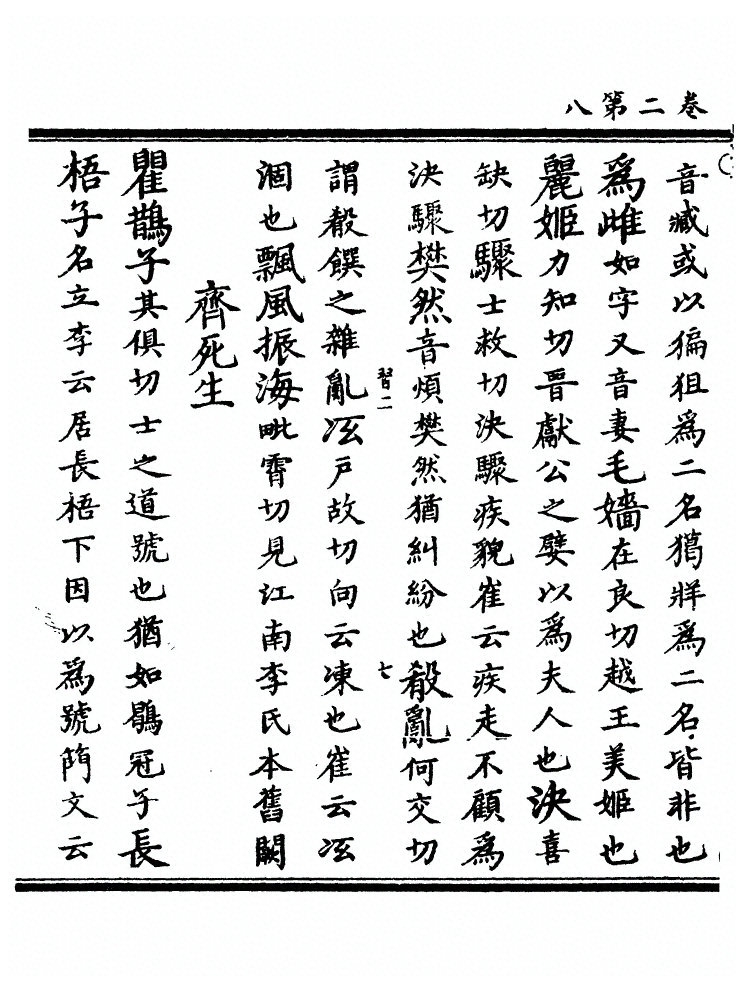 卷二第八
音臧或以猵狙爲二名獦牂爲二名皆非也
爲雌如字又音妻毛嬙在良切越王美姬也
麗姬力知切晉獻公之嬖以爲夫人也決喜
缺切驟士救切決驟疾貌崔云疾走不顧爲
決驟樊然音煩樊然猶糾紛也殽亂何交切
習二
七
謂殽饌之雜亂冱戶故切向云凍也崔云冱
涸也飄風振海毗霄切見江南李氏本舊闕
齊死生
瞿鵲子其俱切士之道號也猶如鶡冠子長
梧子名立李云居長梧下因以爲號簡文云